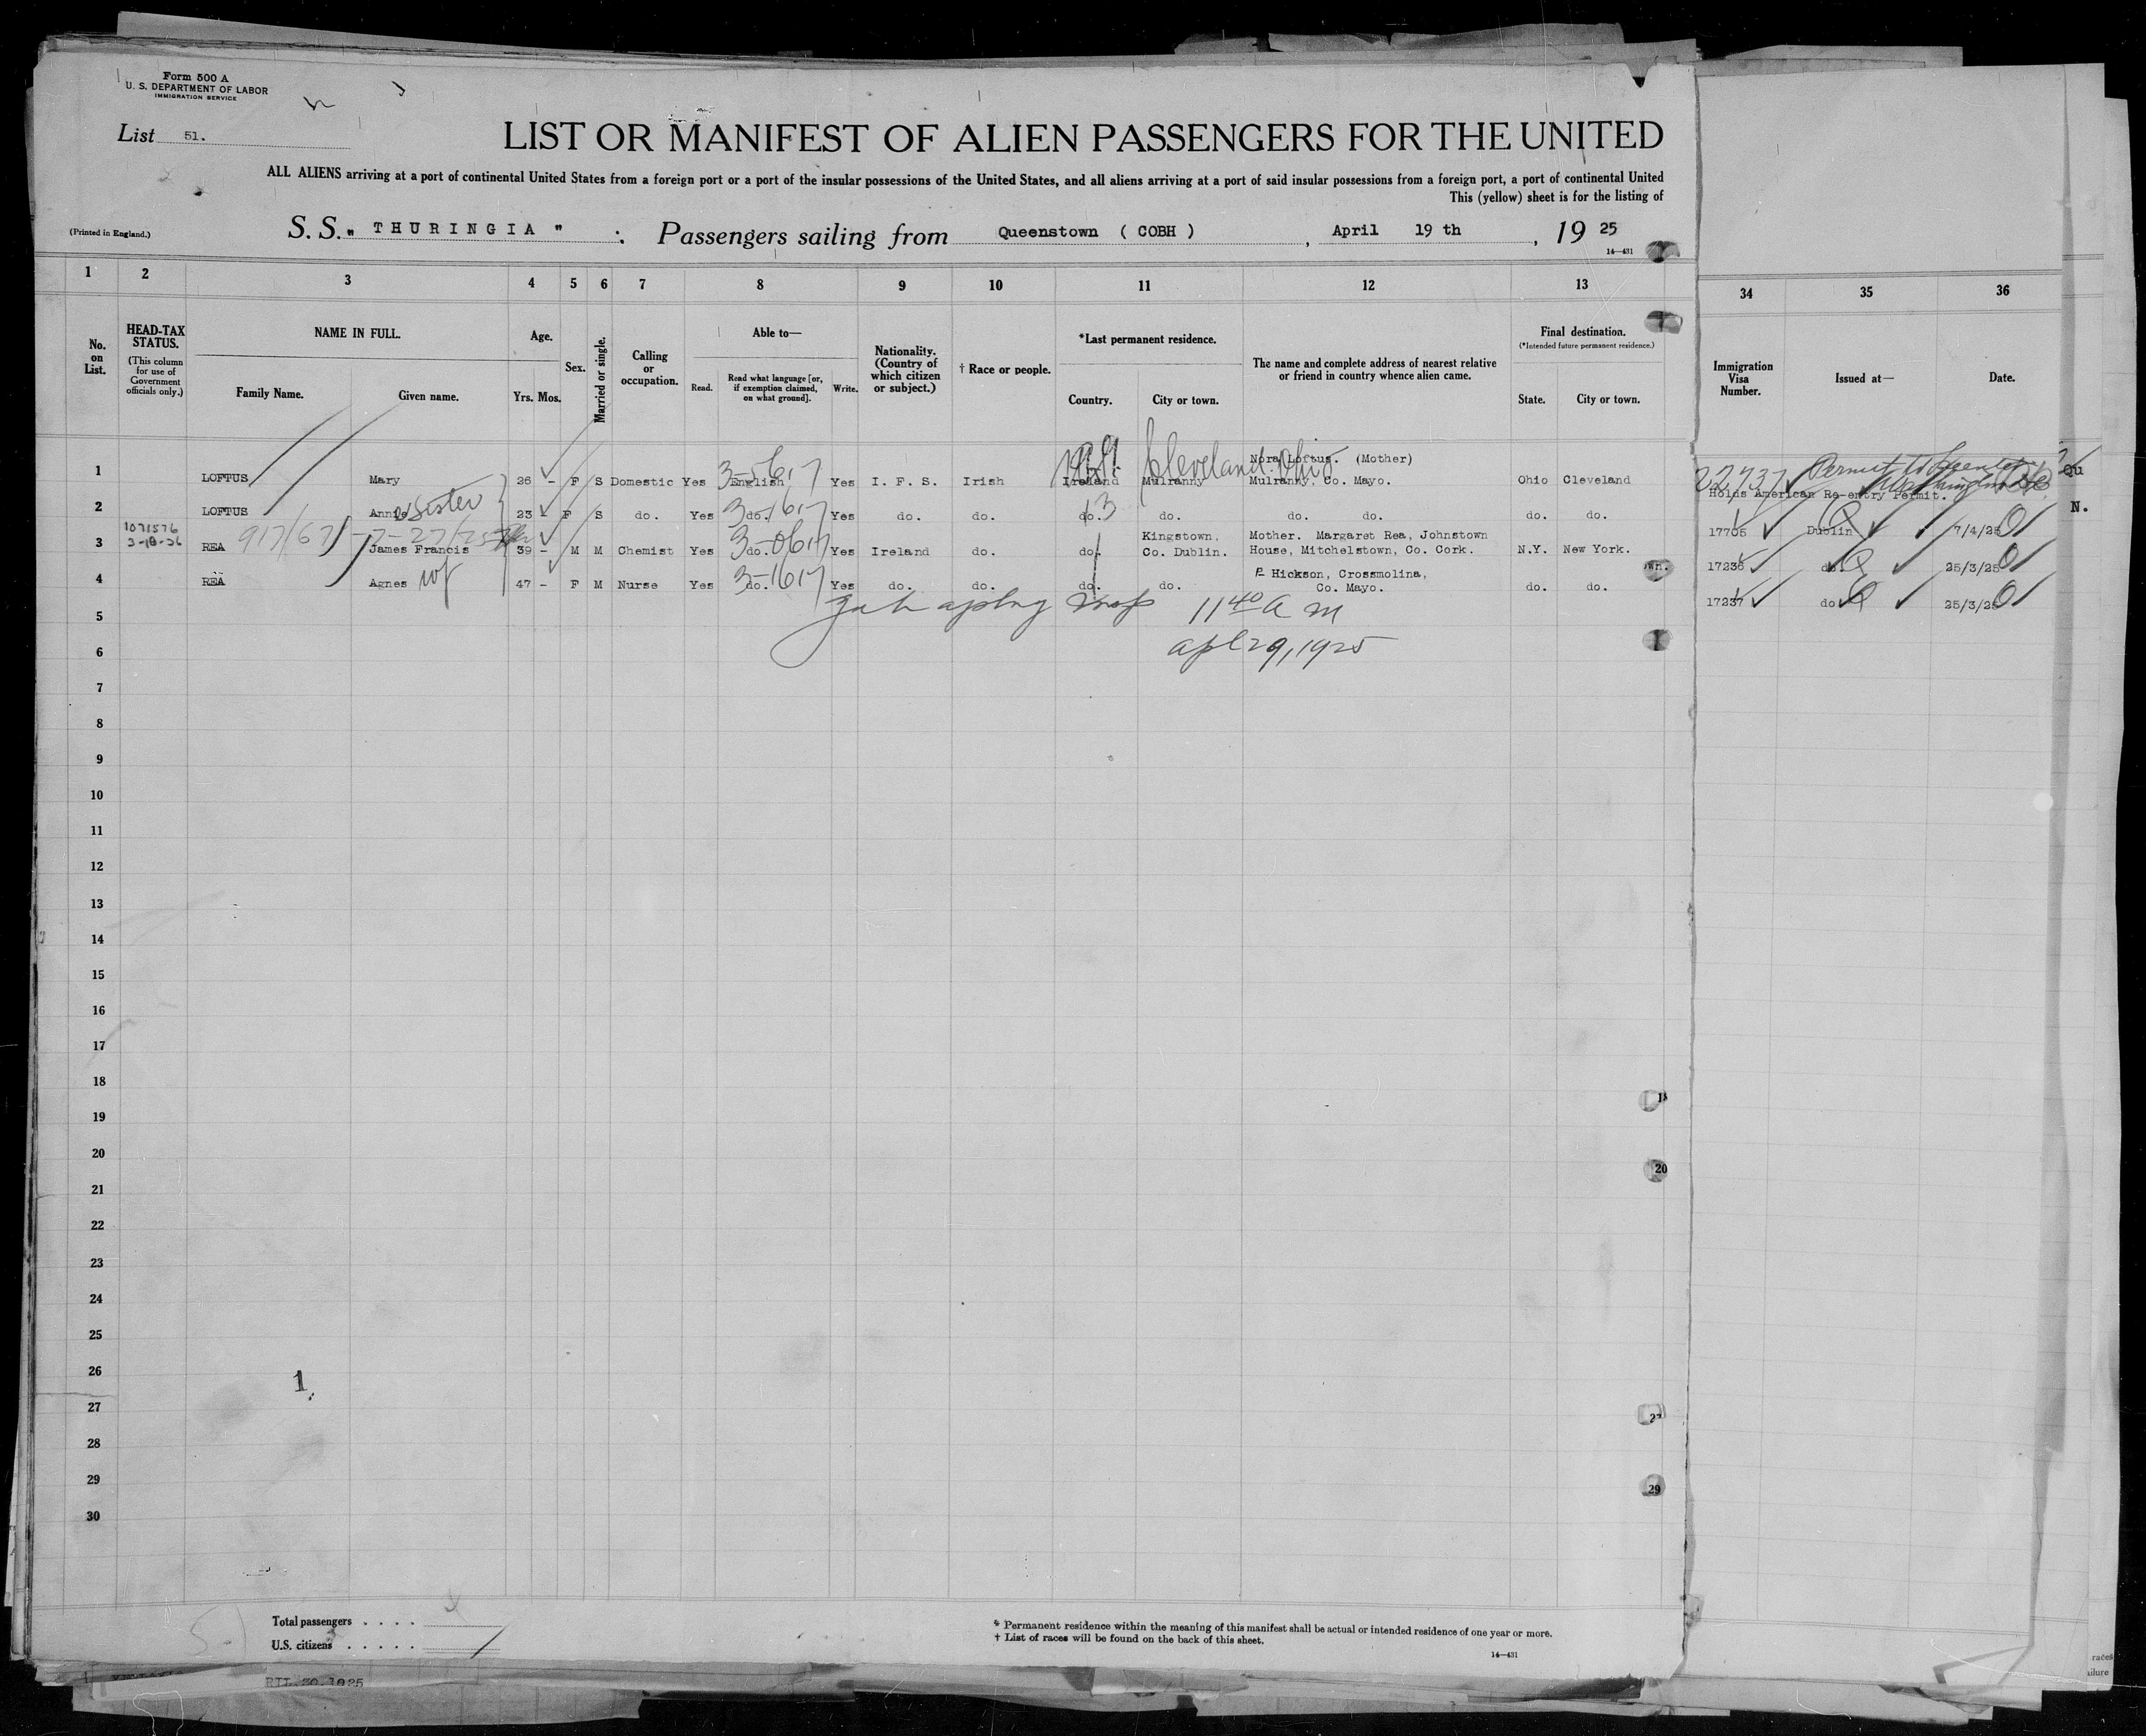 Form 500 A
U. S. DEPARTMENT OF LABOR
IMMIGRATION SERVICE
List 51.
LIST OR MANIFEST OF ALIEN PASSENGERS FOR THE UNITED
ALL ALIENS arriving at a port of continental United States from a foreign port or a port of the insular possessions of the United States, and all aliens arriving at a port of said insular possessions from a foreign port, a port of continental United
This (yellow) sheet is for the listing of
(Printed in England.)
S. S. " THURINGIA " : Passengers sailing from Queenstown ( COBH ) , April 19 th , 19 25
14—431
1 2 3 4 5 6 7 8 9 10 11 12 13 34 35 36
No. on List.
HEAD-TAX STATUS.
(This column for use of Government officials only.)
NAME IN FULL.
Family Name. Given name.
Age.
Yrs. Mos.
Sex.
Married or single.
Calling or occupation.
Able to—
Read. Read what language [or, if exemption claimed, on what ground]. Write.
Nationality. (Country of which citizen or subject.)
† Race or people.
*Last permanent residence.
Country. City or town.
The name and complete address of nearest relative or friend in country whence alien came.
Final destination.
(*Intended future permanent residence.)
State. City or town.
Immigration Visa Number.
Issued at—
Date.
Cleveland Ohio
Nora Loftus. (Mother)
1 LOFTUS Mary 26 - F S Domestic Yes English Yes I. F. S. Irish Ireland Mulranny Mulranny, Co. Mayo. Ohio Cleveland
22737 Permit to Reenter
Washington DC
Holds American Re-entry Permit.
Qu
N.
2 LOFTUS Annie sister 23 - F S do. Yes do. Yes do. do. do. do. do. do. do. do. 17705 Dublin 7/4/25
1071576
3-18-36
917/67
Kingstown, Mother. Margaret Rea, Johnstown
3 REA James Francis 39 - M M Chemist Yes do. Yes Ireland do. do. Co. Dublin. House, Mitchelstown, Co. Cork. N.Y. New York. 17236 do. 25/3/25
Hickson, Crossmolina,
4 REA Agnes wf 47 - F M Nurse Yes do. Yes do. do. do. do. Co. Mayo. do. do. 17237 do. 25/3/25
11 40 A M
5
Apl 29, 1925
6
7
8
9
10
11
12
13
14
15
16
17
18
19
20
21
22
23
24
25
26
1
27
28
29
30
20
29
Total passengers . . . .
U.S. citizens . . . . .
* Permanent residence within the meaning of this manifest shall be actual or intended residence of one year or more.
† List of races will be found on the back of this sheet.
14—431
RIL.30.1925
races
ailure